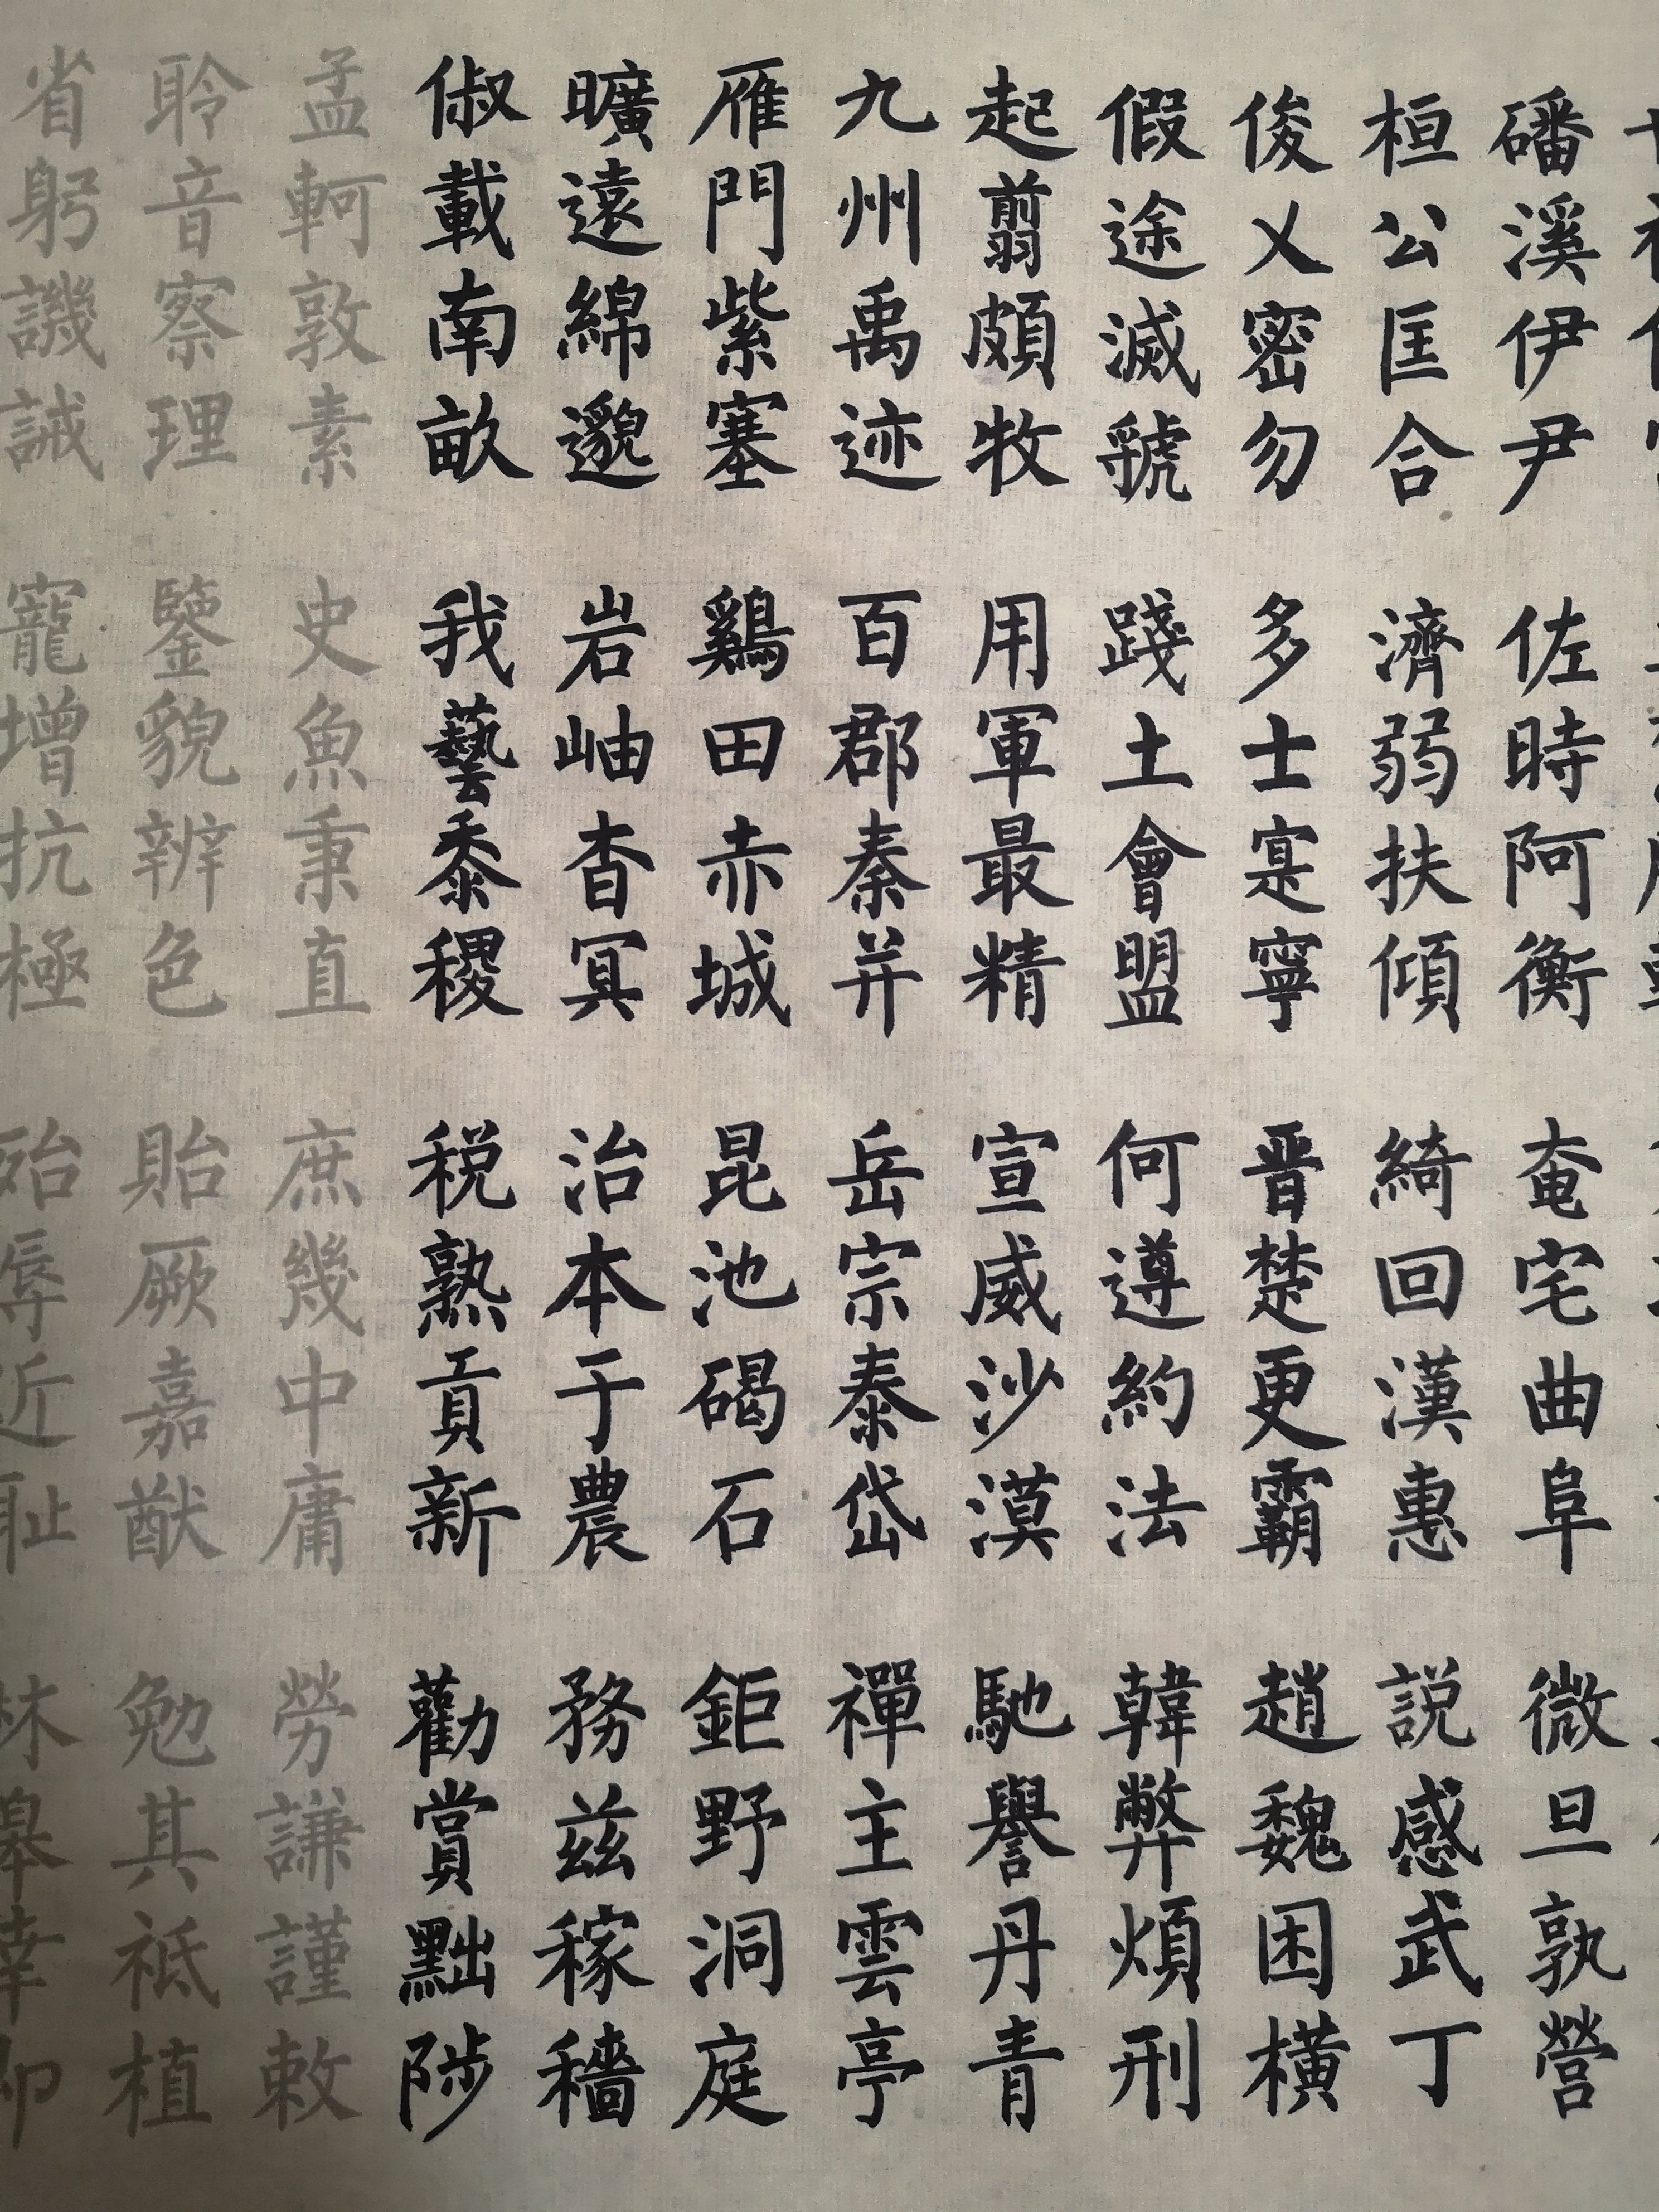 磻溪伊尹 佐時阿衡 奄宅曲阜 微旦孰營
桓公匡合 濟弱扶傾 綺回漢惠 説感武丁
俊乂密勿 多士寔寧 晋楚更霸 趙魏困橫
假途滅虢 踐土會盟 何遵約法 韓弊煩刑
起翦頗牧 用軍最精 宣威沙漠 馳譽丹青
九州禹迹 百郡秦并 岳宗泰岱 禪主雲亭
雁門紫塞 鷄田赤城 昆池碣石 鉅野洞庭
曠遠綿邈 岩岫杳冥 治本于農 務兹稼穡
俶載南畝 我藝黍稷 税熟貢新 勸賞黜陟
孟軻敦素 史魚秉直 庶幾中庸 勞謙謹敕
聆音察理 鑒貌辨色 貽厥嘉猷 勉其祗植
省躬譏誡 寵增抗極 殆辱近耻 林皋幸即